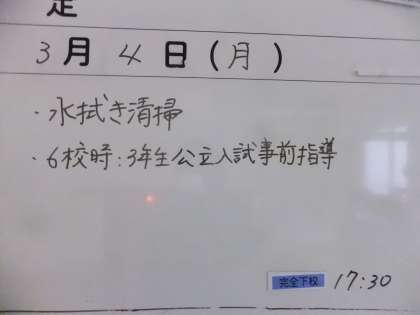 定
3月4日(月)
・水拭き清掃
・6校時:3年生公立入試事前指導
完全下校 17:30